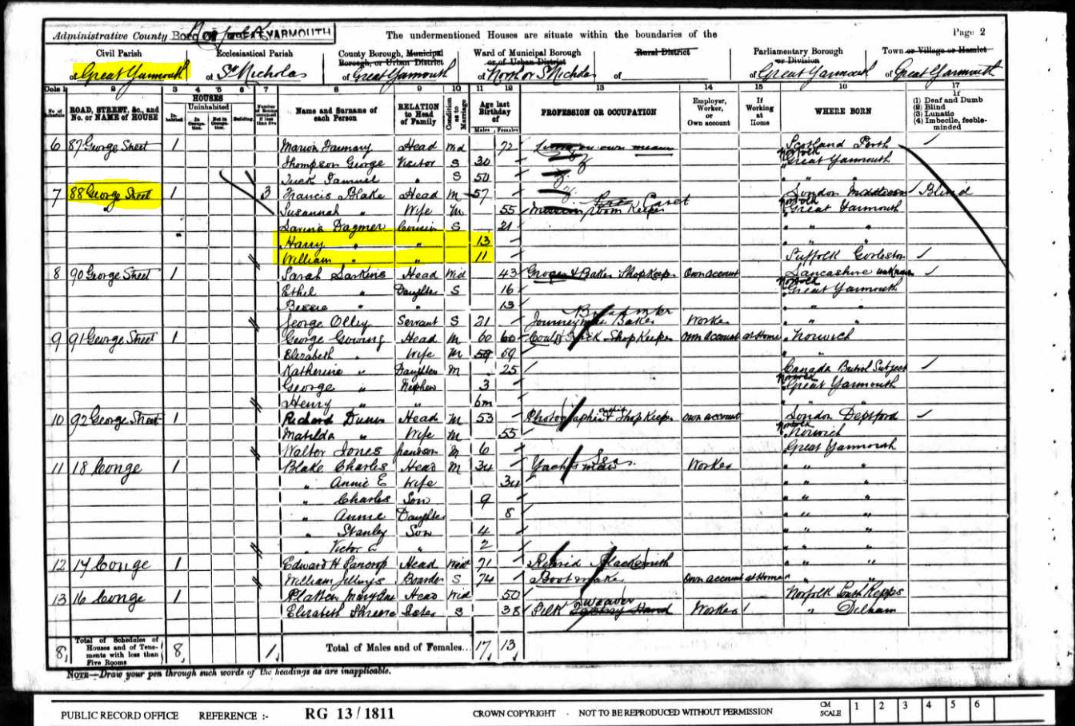 Administrative County Boro of GREAT YARMOUTH The undermentioned Houses are situate within the boundaries of the Page 2
Civil Parish Ecclesiastical Parish County Borough, Municipal Borough, or Urban District Ward of Municipal Borough or of Urban District Rural District Parliamentary Borough or Division Town or Village or Hamlet
of Great Yarmouth of St Nicholas of Great Yarmouth of of of Great Yarmouth of Great Yarmouth
2 3 4 5 6 7 8 9 10 11 12 13 14 15 16 17
ROAD, STREET, &c., and No. or NAME of HOUSE HOUSES Uninhabited Name and Surname of each Person RELATION to Head of Family Condition as to Marriage Age last Birthday of Males Females PROFESSION OR OCCUPATION Employer, Worker, or Own account If Working at Home WHERE BORN If (1) Deaf and Dumb (2) Blind (3) Lunatic (4) Imbecile, feeble-minded
6 87 George Street 1 Head Wd 72 Living on own means Scotland Perth
Thompson George Visitor S 30 Norfolk Great Yarmouth
Tuck Samuel " S 50 " "
7 88 George Street 1 3 Francis Blake Head M 57 London Middlesex Blind
Susannah " Wife M 55 Room Keeper Norfolk Great Yarmouth
Cousin S 21 " "
Harry " " 13 " "
William " " 11 Suffolk Gorleston
8 90 George Street 1 Sarah Larkins Head Wid 43 Grocer & Baker Shop Keeper Own account Lancashire
Ethel " Daughter S 16 Norfolk Great Yarmouth
Bessie " " 13 " "
George Olley Servant S 21 Journeyman Baker Worker " "
9 91 George Street 1 George Gowing Head M 60 60 Shop Keeper own account at Home Norwich
Elizabeth " Wife M 59 69 " "
Katherine " Daughter M 25 Canada British Subject
George " Nephew 3 Norfolk Great Yarmouth
Henry " " 6m " "
10 92 George Street 1 Richard Head M 53 Shop Keeper own account London Deptford
Matilda " Wife M 55 Norfolk Norwich
Walter Jones Grandson M 6 Great Yarmouth
11 18 Conge 1 Blake Charles Head M 34 Yachtsman Sea Worker " "
" Annie E Wife 34 " "
" Charles Son 9 " "
" Annie Daughter 8 " "
" Stanley Son 4 " "
" Victor G " 2 " "
12 17 Conge 1 Edward H Head Wid 71 Retired Blacksmith " "
William Boarder S 74 Bootmaker Own account at Home "
13 16 Conge 1 Platten Head Wid 50 Norfolk
Elizabeth Sister S 38 Silk Weaver Factory Hand Worker " Dilham
8 Total of Schedules of Houses and of Tenements with less than Five Rooms 8 1 Total of Males and of Females... 17 13
NOTE—Draw your pen through such words of the headings as are inapplicable.
PUBLIC RECORD OFFICE REFERENCE :- RG 13 / 1811 CROWN COPYRIGHT - NOT TO BE REPRODUCED WITHOUT PERMISSION CM SCALE 1 2 3 4 5 6